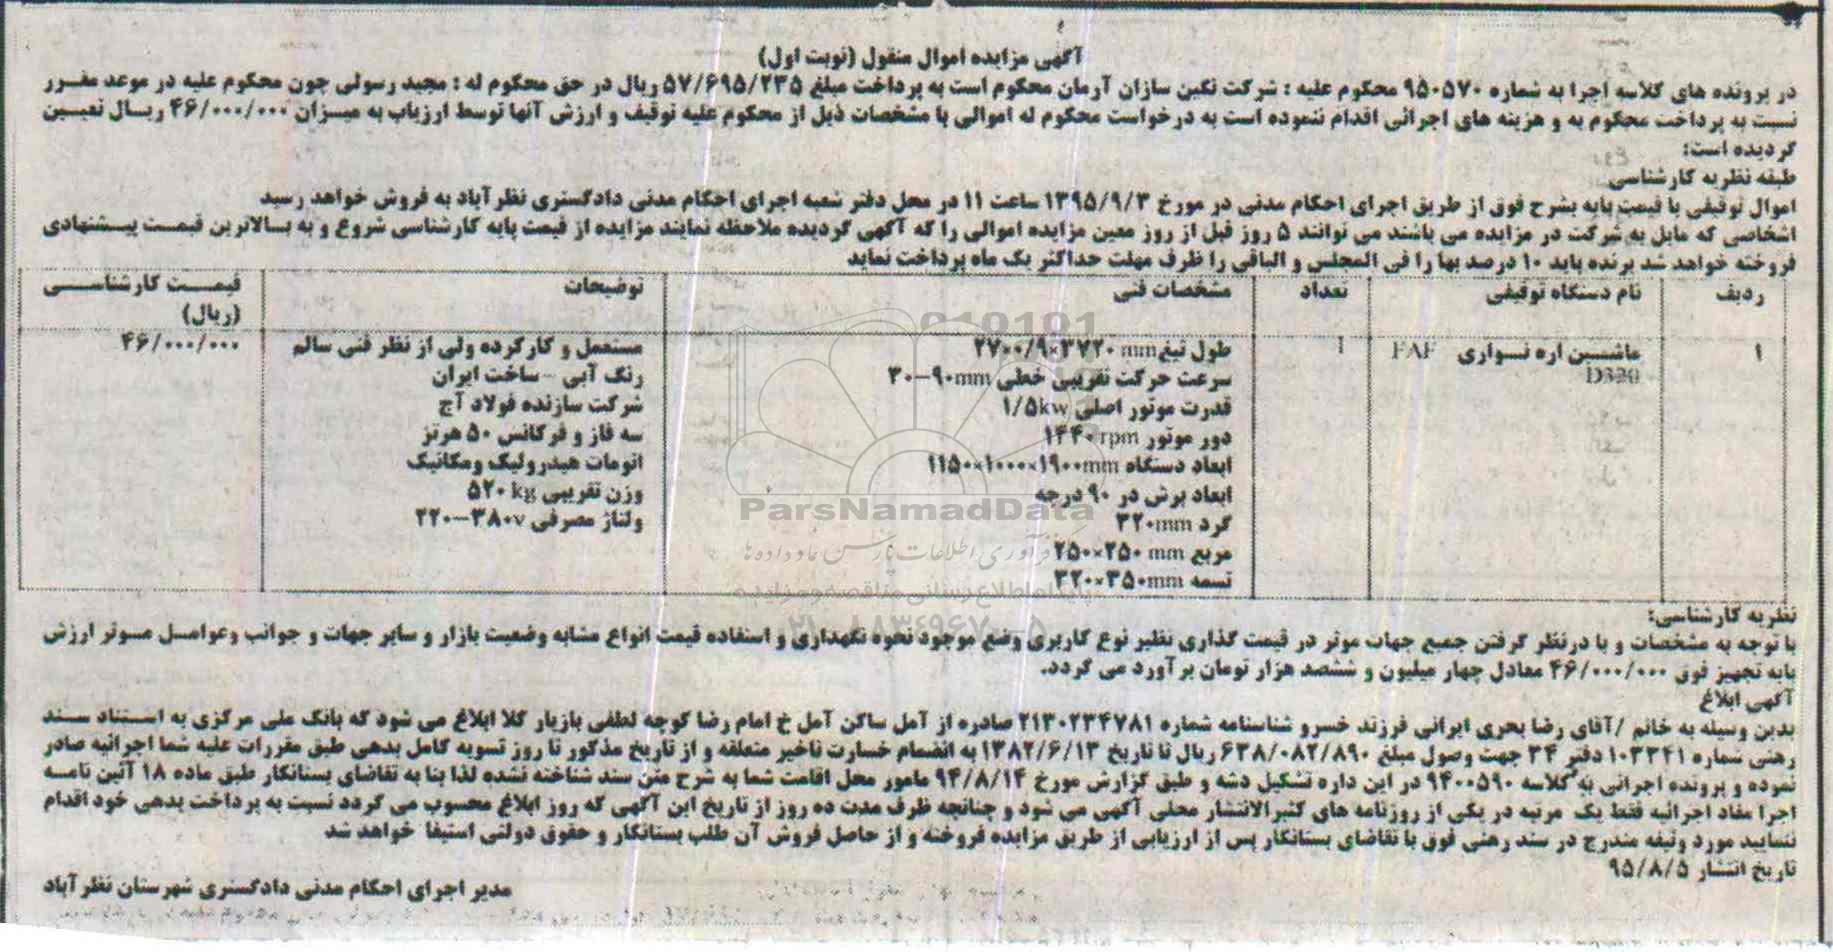 آگهی مزایده اموال منقول (نوبت اول)
در پرونده های کلاسه اجرا به شماره ۹۵۰۵۷۰ محکوم علیه : شرکت نگین سازان آرمان محکوم است به پرداخت مبلغ ۵۷/۶۹۵/۲۳۵ ریال در حق محکوم له : مجید رسولی چون محکوم علیه در موعد مقرر
نسبت به پرداخت محکوم به و هزینه های اجرائی اقدام ننموده است به درخواست محکوم له اموالی با مشخصات ذیل از محکوم علیه توقیف و ارزش آنها توسط ارزیاب به میزان ۴۶/۰۰۰/۰۰۰ ریال تعیین
گردیده است:
طبقه نظریه کارشناسی
اموال توقیفی با قیمت پایه بشرح فوق از طریق اجرای احکام مدنی در مورخ ۱۳۹۵/۹/۳ ساعت ۱۱ در محل دفتر شعبه اجرای احکام مدنی دادگستری نظرآباد به فروش خواهد رسید
اشخاصی که مایل به شرکت در مزایده می باشند می توانند ۵ روز قبل از روز معین مزایده اموالی را که آگهی گردیده ملاحظه نمایند مزایده از قیمت پایه کارشناسی شروع و به بالاترین قیمت پیشنهادی
فروخته خواهد شد برنده باید ۱۰ درصد بها را فی المجلس و الباقی را ظرف مهلت حداکثر یک ماه پرداخت نماید
ردیف نام دستگاه توقیفی تعداد مشخصات فنی توضیحات قیمت کارشناسی
(ریال)
۱ ماشین اره نواری FAF ۱ طول تیغ ۲۷۰۰/۹×۳۷۲۰ mm مستعمل و کارکرده ولی از نظر فنی سالم ۴۶/۰۰۰/۰۰۰
D320 سرعت حرکت تقریبی خطی ۳۰-۹۰mm رنگ آبی - ساخت ایران
قدرت موتور اصلی ۱/۵kw شرکت سازنده فولاد آج
دور موتور ۱۴۴۰ rpm سه فاز و فرکانس ۵۰ هرتز
ابعاد دستگاه ۱۱۵۰×۱۰۰۰×۱۹۰۰mm اتومات هیدرولیک ومکانیک
ابعاد برش در ۹۰ درجه وزن تقریبی ۵۲۰ kg
گرد ۳۲۰mm ولتاژ مصرفی ۲۲۰-۳۸۰v
مربع ۲۵۰×۲۵۰ mm
تسمه ۳۲۰×۳۵۰mm
010101
ParsNamadData
فرآوری اطلاعات پارس نماد داده ها
پایگاه اطلاع رسانی مناقصه و مزایده
۰۲۱-۸۸۳۴۹۶۷۰-۵
نظریه کارشناسی:
با توجه به مشخصات و با درنظر گرفتن جمیع جهات موثر در قیمت گذاری نظیر نوع کاربری وضع موجود نحوه نگهداری و استفاده قیمت انواع مشابه وضعیت بازار و سایر جهات و جوانب وعوامل موثر ارزش
پایه تجهیز فوق ۴۶/۰۰۰/۰۰۰ معادل چهار میلیون و ششصد هزار تومان برآورد می گردد.
آگهی ابلاغ
بدین وسیله به خانم /آقای رضا بحری ایرانی فرزند خسرو شناسنامه شماره ۲۱۳۰۲۳۴۷۸۱ صادره از آمل ساکن آمل خ امام رضا کوچه لطفی بازیار کلا ابلاغ می شود که بانک ملی مرکزی به استناد سند
رهنی شماره ۱۰۳۳۴۱ دفتر ۳۴ جهت وصول مبلغ ۶۳۸/۰۸۲/۸۹۰ ریال تا تاریخ ۱۳۸۲/۶/۱۳ به انضمام خسارت تاخیر متعلقه و از تاریخ مذکور تا روز تسویه کامل بدهی طبق مقررات علیه شما اجرائیه صادر
نموده و پرونده اجرائی به کلاسه ۹۴۰۰۵۹۰ در این داره تشکیل دشه و طبق گزارش مورخ ۹۴/۸/۱۴ مامور محل اقامت شما به شرح متن سند شناخته نشده لذا بنا به تقاضای بستانکار طبق ماده ۱۸ آئین نامه
اجرا مفاد اجرائیه فقط یک مرتبه در یکی از روزنامه های کثیرالانتشار محلی آگهی می شود و چنانچه ظرف مدت ده روز از تاریخ این آگهی که روز ابلاغ محسوب می گردد نسبت به پرداخت بدهی خود اقدام
ننمایید مورد وثیقه مندرج در سند رهنی فوق با تقاضای بستانکار پس از ارزیابی از طریق مزایده فروخته و از حاصل فروش آن طلب بستانکار و حقوق دولتی استیفا خواهد شد
تاریخ انتشار ۹۵/۸/۵
مدیر اجرای احکام مدنی دادگستری شهرستان نظرآباد